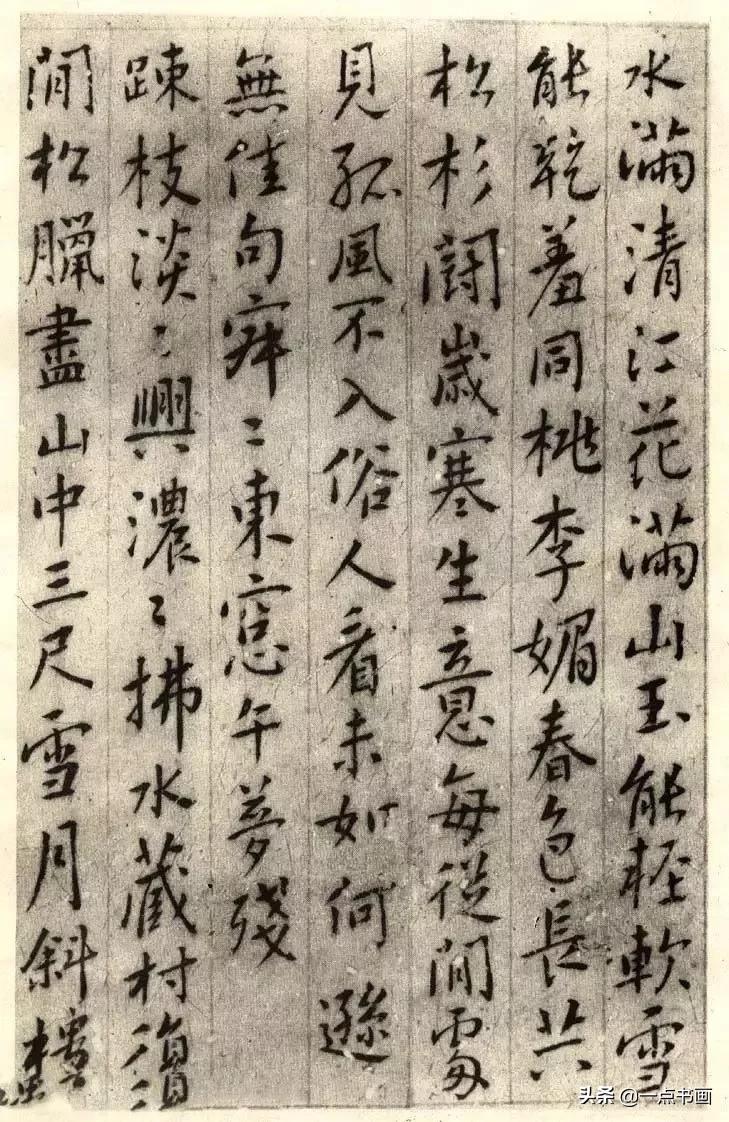 水滿清江花滿山玉能輕軟雪
能乾羞同桃李媚春色長共
松杉鬪歲寒生意每從閒處
見孤風不入俗人看未如何遜
無佳句寂〻東窓午夢殘
踈枝淡〻興濃〻拂水藏村須
閒松臘盡山中三尺雪月斜樓
头条 @一点书画